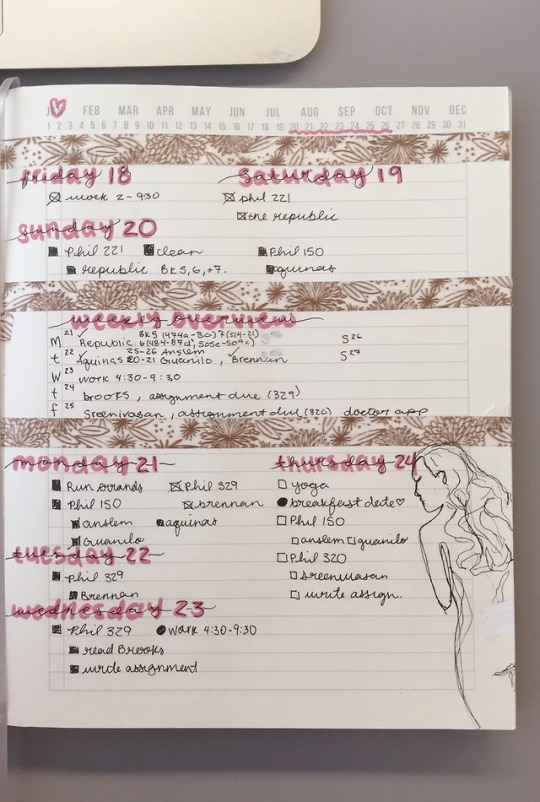 JAN FEB MAR APR MAY JUN JUL AUG SEP OCT NOV DEC
1 2 3 4 5 6 7 8 9 10 11 12 13 14 15 16 17 18 19 20 21 22 23 24 25 26 27 28 29 30 31
friday 18 saturday 19
work 2-930 phil 221
the republic
sunday 20
Phil 221 clean Phil 150
republic BK 5, 6, +7. aquinas
weekly overview
21 BK5 (474a-80) 7(514-21)
M Republic,
22 25-26 Anslem S26
t Aquinas 20-21 Guanilo, Brennan S27
W 23 work 4:30-9:30
t 24 brooks, assignment due (329)
f 25 Sreenivasan, assignment due (320) doctor app
monday 21 thursday 24
Run errands Phil 329 yoga
Phil 150 brennan breakfast date♡
anslem aquinas Phil 150
Guanilo anslem guanilo
tuesday 22 Phil 320
Phil 329 sreenivasan
Brennan write assign.
wednesday 23
Phil 329 work 4:30-9:30
read Brooks
write assignment